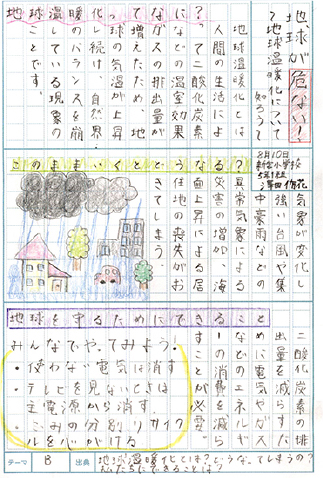 地球が危ない！
地球温暖化について知ろう
8月10日
新宮小学校
地球温暖化ってなに？
地球温暖化とは
人間の生活によ
って二酸化炭素
などの温室効果
ガスの排出量が
増えたため、地
球の気温が上昇
し続け、自然界
のバランスを崩
している現象の
ことです。
このままいくとどうなる？
気候が変化し
強い台風や集
中豪雨などの
異常気象による災
害の増加、海
面上昇による居
住地の喪失がお
きてしまう。
地球を守るためにできること
二酸化炭素の排
出量を減らすた
めに電気やガス
などのエネルギ
ーの消費を減ら
すことが必要。
みんなでやってみよう！
・使わない電気は消す
・テレビを見ないときは
主電源から消す。
・ごみの分別、リサイク
ルを心がける
テーマ B 出典 地球温暖化とは？どうなってしまうの？
私たちにできることは？